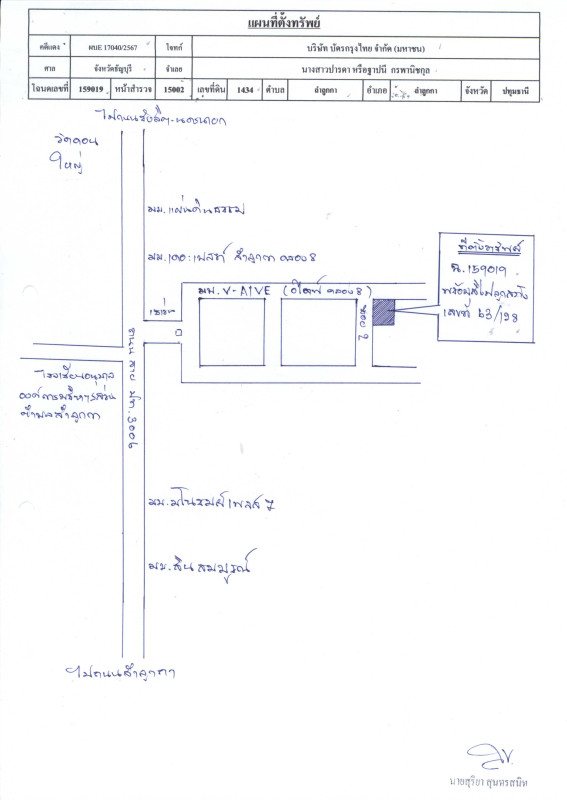 แผนที่ตั้งทรัพย์
คดีแดง ผบE 17040/2567 โจทก์ บริษัท บัตรกรุงไทย จำกัด (มหาชน)
ศาล จังหวัดธัญบุรี จำเลย นางสาวปารดา หรือฐาปนี กรพานิชกุล
โฉนดเลขที่ 159019 หน้าสำรวจ 15002 เลขที่ดิน 1434 ตำบล ลำลูกกา อำเภอ ลำลูกกา จังหวัด ปทุมธานี
ไปถนนรังสิต-นครนายก
วัดดอน
ใหญ่
มบ.แผ่นดินธรรม
มบ.เดอะเพลส ลำลูกกา คลอง 8
ที่ตั้งทรัพย์
ฉ.159019
พร้อมสิ่งปลูกสร้าง
เลขที่ 63/198
มบ. V-AIVE คลอง 8)
ซอย 2
ถนนสาย ปท.3006
โรงเรียนอนุบาล
องค์การบริหารส่วน
ตำบลลำลูกกา
มบ.มโนรมย์เพลส 7
มบ.สินสมบูรณ์
ไปถนนลำลูกกา
นายสุริยา สุนทรสนิท